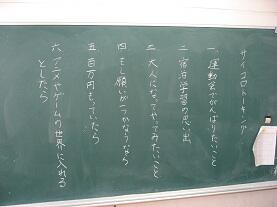 サイコロトーキング
一、運動会でがんばりたいこと
二、宿泊学習の思い出
三、大人になってやってみたいこと
四、もし願いがつかなうなら
五、百万円もっていたら
六、アニメやゲームの世界に入れる
としたら